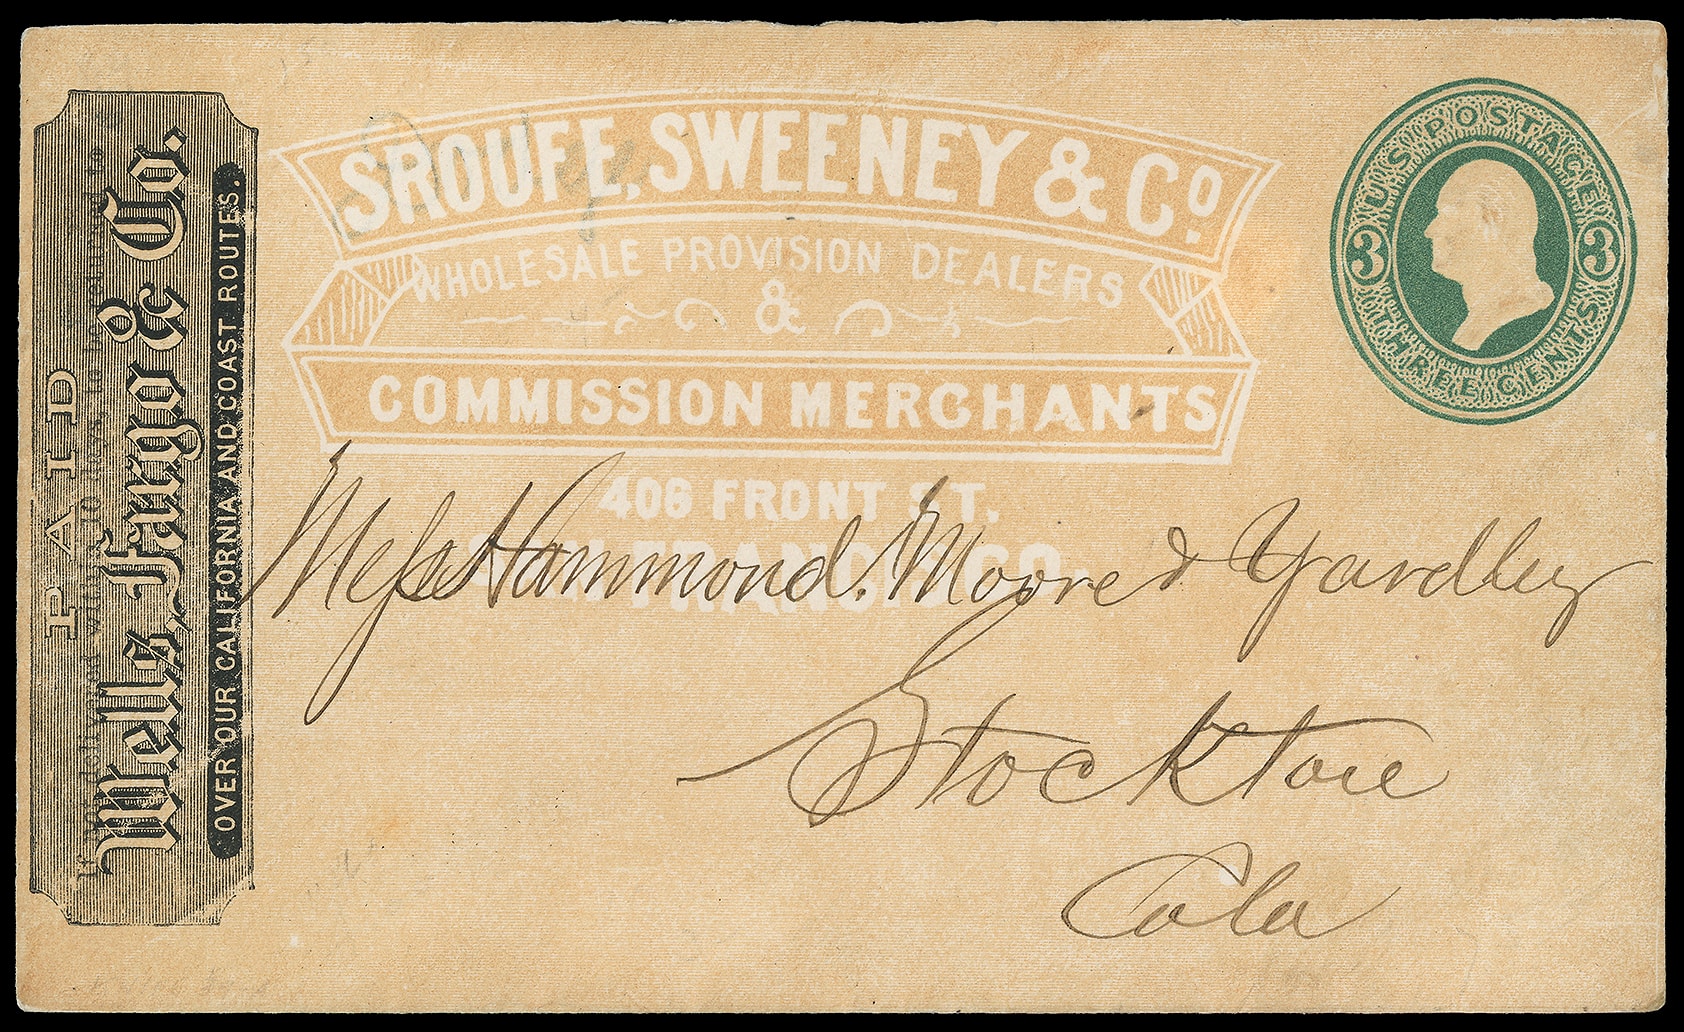 SROUFE, SWEENEY & Co.
WHOLESALE PROVISION DEALERS
&
COMMISSION MERCHANTS
406 FRONT ST.
SAN FRANCISCO.
U.S. POSTAGE
3 3
THREE CENTS
PAID
If not delivered within 10 days, to be returned to
Wells, Fargo & Co.
OVER OUR CALIFORNIA AND COAST ROUTES.
Mess Hammond, Moore & Yardley
Stockton
Cala